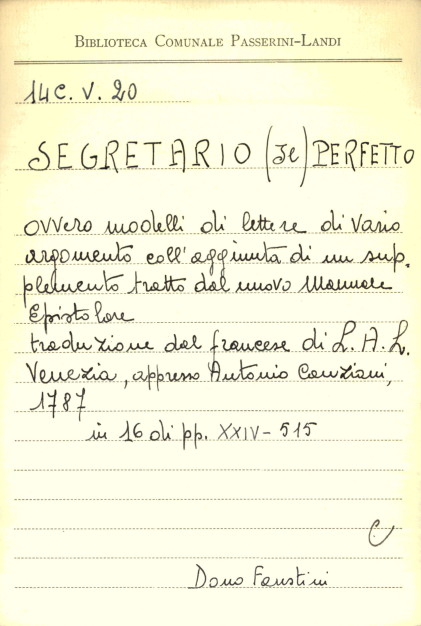 BIBLIOTECA COMUNALE PASSERINI-LANDI
14C. V. 20
SEGRETARIO (Il) PERFETTO
ovvero modelli di lettere di vario
argomento coll'aggiunta di un sup-
plemento tratto dal nuovo Manuale
Epistolare
traduzione dal francese di L. A. L.
Venezia, appresso Antonio Canziani,
1787
in 16 di pp. XXIV - 515
C
Dono Faustini